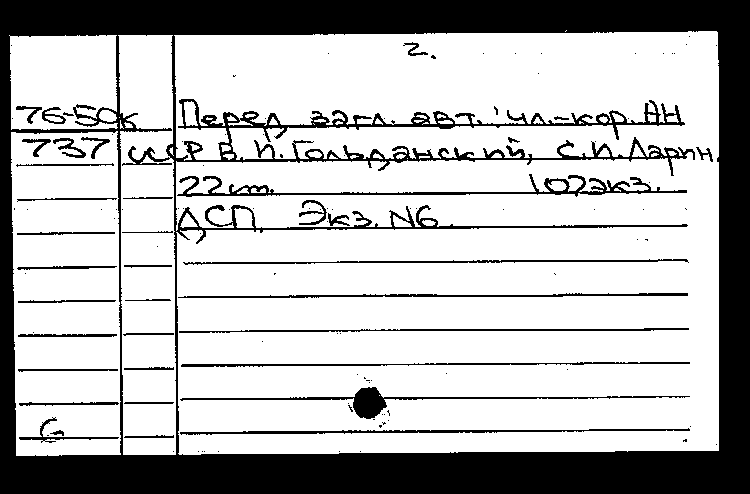 2.
76-50к Перед загл. авт.: чл.-кор. АН
737 СССР В. И. Гольданский, С.П. Ларин.
22 ст. 102 экз.
ДСП. Экз. N6.
G